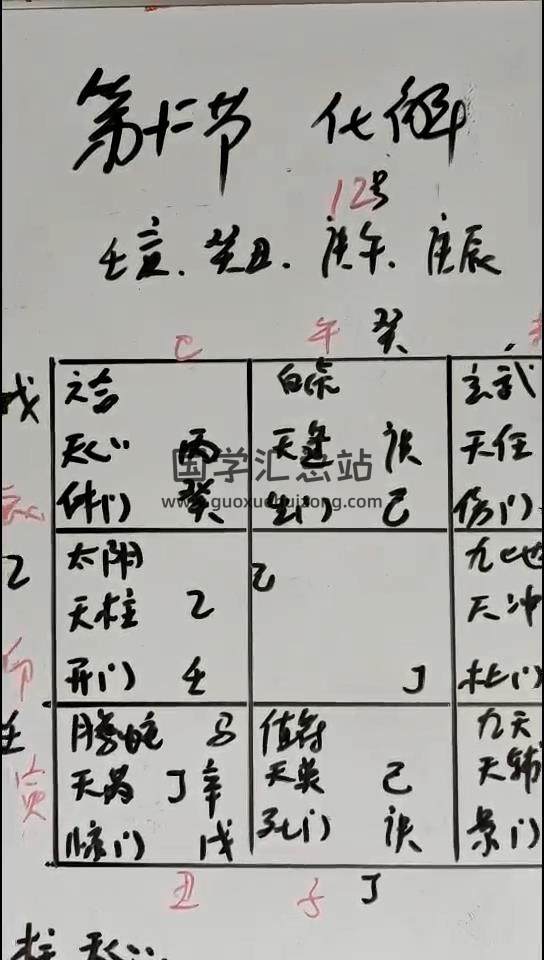 第十二节 化解
12号
壬寅、癸丑、庚午、庚辰
癸
巳 午
戊
六合 白虎 玄武
天心 丙 天蓬 庚 天任
休门 癸 生门 己 伤门
国学汇总站
www.guoxuehuizong.com
乙
太阴 乙 九地
天柱 乙 天冲
开门 壬 丁 杜门
卯
壬
寅
腾蛇 马 值符 九天
天芮 丁 辛 天英 己 天辅
惊门 戊 死门 庚 景门
丑 子 丁
柱 天心